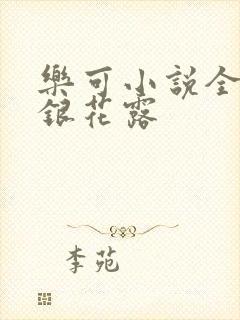 樂可小說全
銀花露
李苑